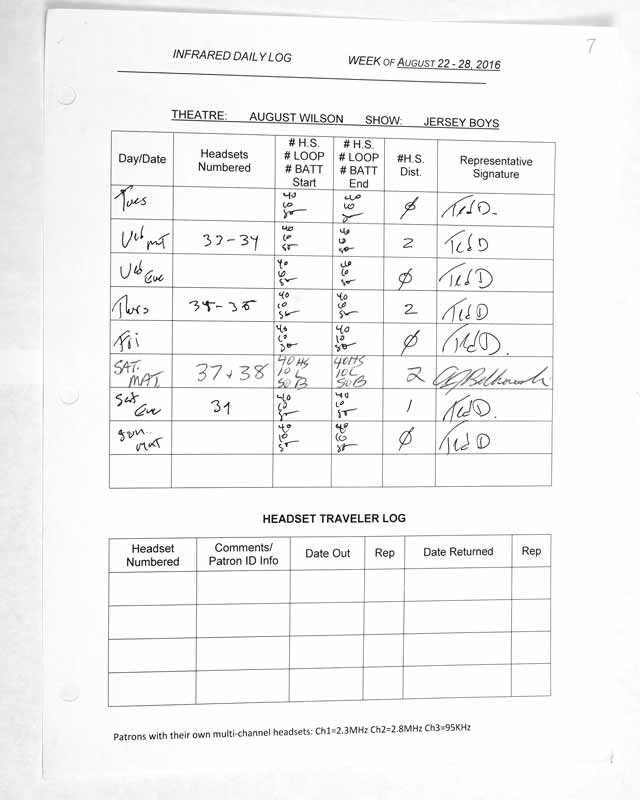 7
INFRARED DAILY LOG WEEK OF AUGUST 22 - 28, 2016
THEATRE: AUGUST WILSON SHOW: JERSEY BOYS
Day/Date Headsets Numbered # H.S. # LOOP # BATT Start # H.S. # LOOP # BATT End #H.S. Dist. Representative Signature
Tues 40 10 50 40 10 Ø Ted D.
Wed mT 33-34 40 10 50 40 10 50 2 Ted D
Wed Eve 40 10 50 40 10 50 Ø Ted D
Thurs 40 10 50 40 10 50 2 Ted D
Fri 40 10 50 40 10 50 Ø Ted D.
SAT. MAT. 37+38 40HS 10L 50B 40HS 10L 50B 2
Sat Eve 39 40 10 50 40 10 50 1 Ted D.
Sun. mat 40 10 50 40 10 50 Ø Ted D
HEADSET TRAVELER LOG
Headset Numbered Comments/ Patron ID Info Date Out Rep Date Returned Rep
Patrons with their own multi-channel headsets: Ch1=2.3MHz Ch2=2.8MHz Ch3=95KHz